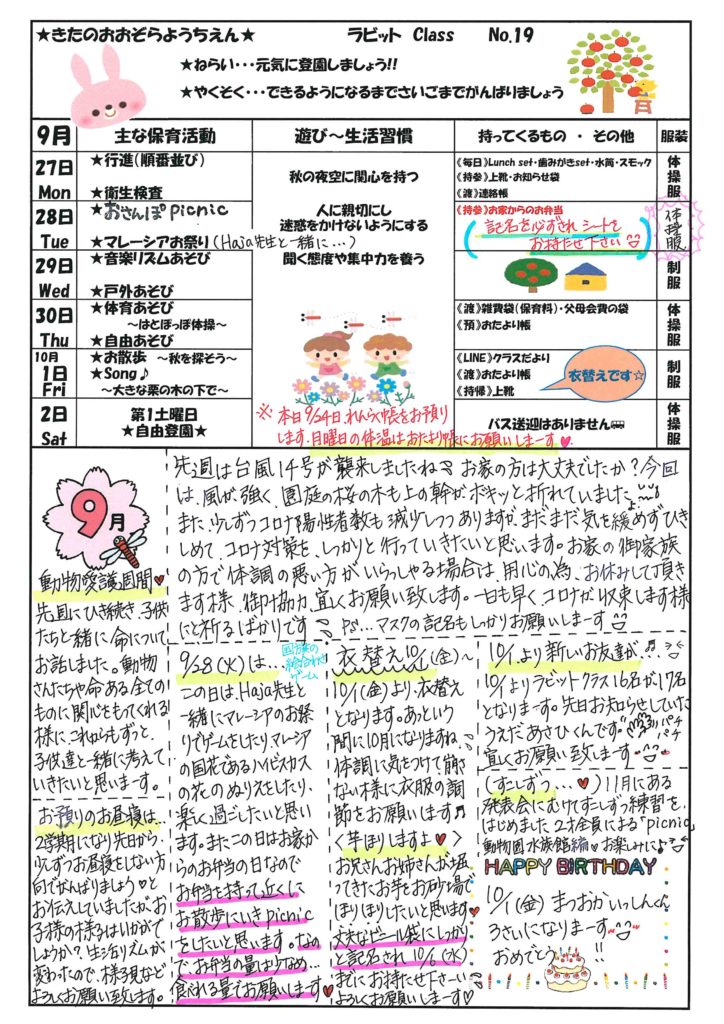 ★きたのおおぞらようちえん★ ラビット Class No.19
★ねらい・・・元気に登園しましょう!!
★やくそく・・・できるようになるまでさいごまでがんばりましょう
9月 主な保育活動 遊び～生活習慣 持ってくるもの ・ その他 服装
27日 Mon
★行進(順番並び)
★衛生検査
秋の夜空に関心を持つ
《毎日》Lunch set・歯みがきset・水筒・スモック
《持参》上靴・お知らせ袋
《渡》連絡帳
体操服
28日 Tue
★おさんぽpicnic
★マレーシアお祭り(Haja先生と一緒に…)
人に親切にし
迷惑をかけないようにする
《持参》お家からのお弁当
(記名を必ずされ シートを
お持たせ下さい)
体操服
29日 Wed
★音楽リズムあそび
★戸外あそび
聞く態度や集中力を養う
制服
30日 Thu
★体育あそび
～はとぽっぽ体操～
★自由あそび
《渡》雑費袋(保育料)・父母会費の袋
《預》おたより帳
体操服
10月
1日 Fri
★お散歩 ～秋を探そう～
★Song♪
～大きな栗の木の下で～
《LINE》クラスだより
《渡》おたより帳
《持帰》上靴
衣替えです☆
制服
2日 Sat
第1土曜日
★自由登園★
※本日9/24日、れんらく帳をお預り
します。月曜日の体温はおたより帳にお願いしまーす♥
バス送迎はありません
体操服
9月
先週は台風14号が襲来しましたね お家の方は大丈夫でしたか?今回
は、風が強く、園庭の桜の木も上の幹がボキッと折れていました
また、少しずつコロナ陽性者数も減少しつつありますが、まだまだ気を緩めずひき
しめて、コロナ対策を、しっかりと行っていきたいと思います。お家の御家族
の方で体調の悪い方がいらっしゃる場合は、用心の為、お休みして頂き
ます様、御協力、宜しくお願い致します。一日も早く、コロナが収束します様
にと祈るばかりです P.S…マスクの記名もしっかりお願いしまーす
動物愛護週間♥
先週にひき続き、子供
たちと一緒に命について
お話しました。動物
さんたちや命ある全ての
ものに関心をもってくれる
様に、これからもずっと、
子供達と一緒に考えて
いきたいと思いまーす。
お預りのお昼寝は…
2学期になり先日から、
少しずつお昼寝をしない方
向でがんばりましょう♡と
お伝えしていましたが、お
子様の様子はいかがで
しょうか?生活リズムが
変わったので、様子見など
よろしくお願い致します。
9/28(火)は…
国旗の
絵合わせ
ゲーム
この日は、Haja先生と
一緒にマレーシアのお祭
りでゲームをしたり、マレーシア
の国花であるハイビスカス
の花のぬりえをしたり、
楽しく過ごしたいと思い
ます。またこの日はお家か
らのお弁当の日なので
お弁当を持って近くに
お散歩にいきpicnic
をしたいと思います。なの
で、お弁当の量は少なめ…
食べれる量でお願いします♥
衣替え10/1(金)～
10/1(金)より、衣替え
となります。あっという
間に10月になりますね
体調に気をつけて崩さ
ない様に衣服の調
節をお願いします♬
〈芋ほりしますよ♥〉
お兄さんお姉さんが堀
ってきたお芋をお砂場で
ほりほりしたいと思います
丈夫なビニール袋にしっかり
と記名され10/6(水)
までにお持たせ下さーい
よろしくお願いしまーす♡
10/1より新しいお友達が…♬
10/1よりラビットクラス16名が17名
となりまーす。先日お知らせしていた
うえだあさひくんです。パチパチ
宜しくお願い致しまーす
(すこしずつ…♥)11月にある
発表会にむけてすこしずつ練習を、
はじめました 2才全員による「picnic」
動物園水族館編 お楽しみに♪
HAPPY BIRTHDAY
10/1(金) まつおか いっしんくん
3さいになりまーす
おめでとう!!